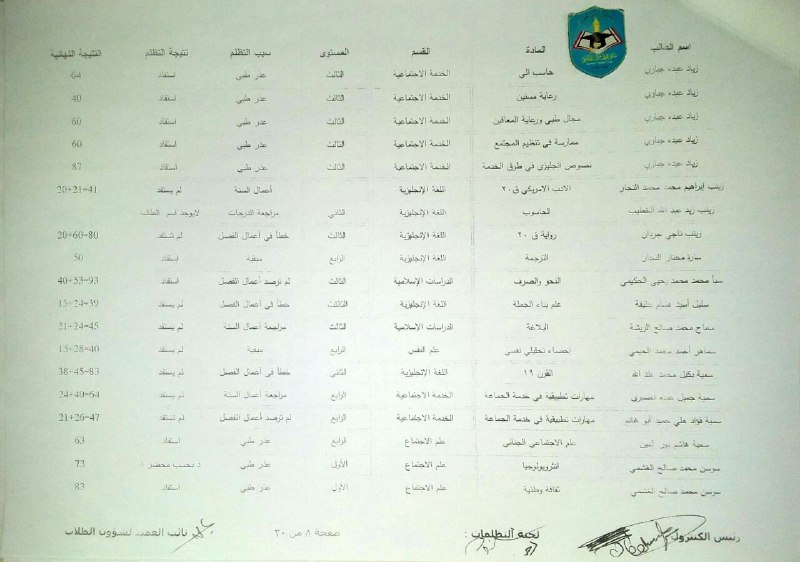 اسم الطالب المادة القسم المستوى سبب التظلم نتيجة التظلم النتيجة النهائية
زياد عبده جباري حاسب الي الخدمة الاجتماعية الثالث عذر طبي استفاد 64
زياد عبده جباري رعاية مسنين الخدمة الاجتماعية الثالث عذر طبي استفاد 40
زياد عبده جباري مجال طبي ورعاية المعاقين الخدمة الاجتماعية الثالث عذر طبي استفاد 60
زياد عبده جباري ممارسة في تنظيم المجتمع الخدمة الاجتماعية الثالث عذر طبي استفاد 60
زياد عبده جباري نصوص انجليزي في طرق الخدمة الخدمة الاجتماعية الثالث عذر طبي استفاد 87
زينب إبراهيم محمد محمد النجار الادب الامريكي ق٢٠ اللغة الإنجليزية أعمال السنة لم يستفد 20+21=41
زينب زيد عبد الله الخطيب الحاسوب اللغة الإنجليزية الثاني مراجعة الدرجات لايوجد اسم الطالب
زينب ناجي جريان رواية ق ٢٠ اللغة الإنجليزية الثالث خطأ في أعمال الفصل لم تستفد 20+60=80
سارة مختار النجار الترجمة اللغة الإنجليزية الرابع متبقية استفاد 50
سبأ محمد محمد يحيى الحكيمي النحو والصرف الدراسات الإسلامية الثالث لم ترصد أعمال الفصل استفاد 40+53=93
سليل أسيد علم بناء الجملة اللغة الإنجليزية الثالث خطأ في أعمال الفصل لم يستفد 15+24=39
سماح محمد صالح الريشة البلاغة الدراسات الإسلامية الثالث مراجعة أعمال السنة لم يستفد 21+24=45
سماهر أحمد محمد احصاء تحليلي نفسي علم النفس الرابع متبقية لم يستفد
سمية بكيل محمد عبد الله القرن ١٩ اللغة الإنجليزية الثاني خطأ في أعمال الفصل لم يستفد 38+45=83
سمية جميل عبده مهارات تطبيقية في خدمة الجماعة الخدمة الاجتماعية الرابع مراجعة أعمال السنة لم يستفد 24+40=64
سمية فؤاد علي حميد أبو غانم مهارات تطبيقية في خدمة الجماعة الخدمة الاجتماعية الرابع لم ترصد أعمال الفصل لم تستفد 21+26=47
سمية هاشم نور الدين علم الاجتماعي الجنائي علم الاجتماع الرابع عذر طبي استفاد 63
سوسن محمد صالح الغشمي انثروبولوجيا علم الاجتماع الأول عذر طبي محضر 73
سوسن محمد صالح الغشمي ثقافة وطنية علم الاجتماع الأول عذر طبي استفاد 83
رئيس الكنترول لجنة التظلمات : صفحة ٨ من ٢٠ نائب العميد لشؤون الطلاب